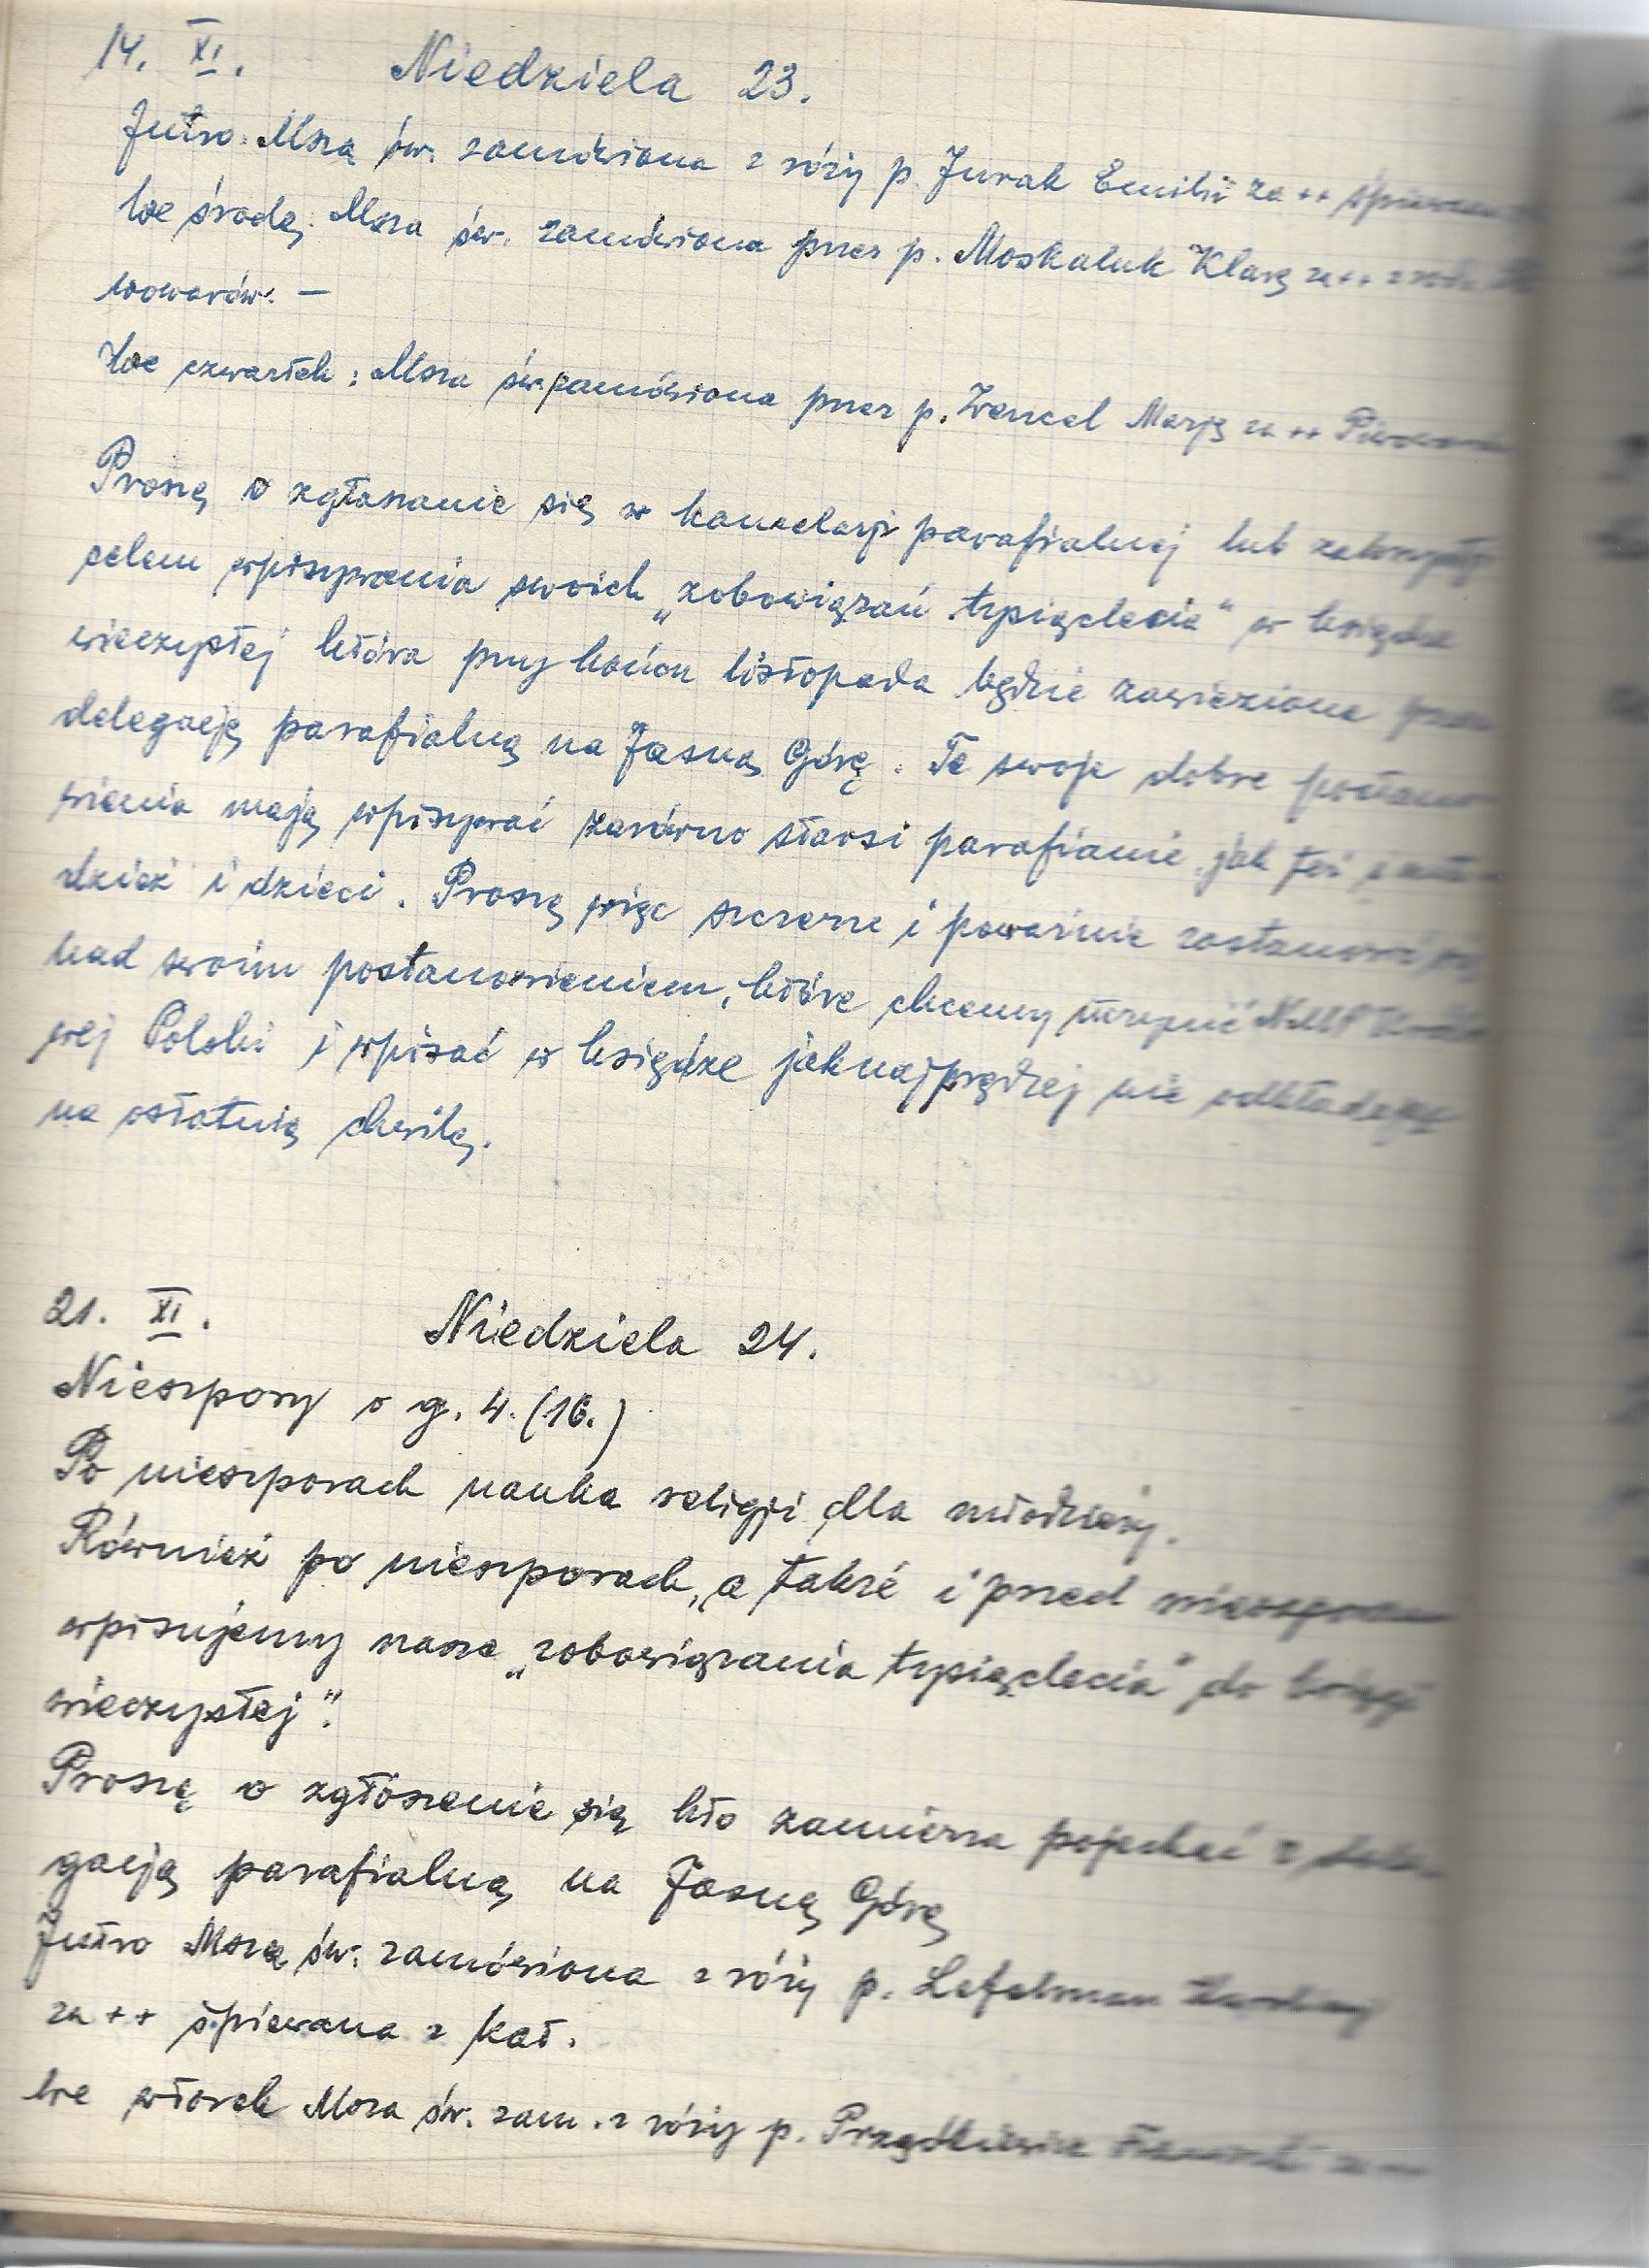 14. XI. Niedziela 23.
Jutro: Msza św. zamówiona z róży p. Jurak Emilii za ++ śpiewana
We środę: Msza św. zamówiona przez p. Moskaluk Klarę za ++ z rodz.
wowarów. —
We czwartek: Msza św. zamówiona przez p. Wencel Marję za ++
Proszę o zgłaszanie się w kancelarji parafialnej lub zakrystji
celem wpisywania swoich „zobowiązań tysiąclecia" w księdze
wieczystej która przy końcu listopada będzie zawieziona przez
delegację parafialną na Jasną Górę. Te swoje dobre postano-
wienia mają wpisywać zarówno starsi parafianie, jak też i mło-
dzież i dzieci. Proszę więc szczerze i poważnie zastanowić się
nad swoim postanowieniem, które chcemy uczynić NMP Królo-
wej Polski i wpisać w księdze jaknajprędzej nie odkładając
na ostatnią chwilę.
21. XI. Niedziela 24.
Nieszpory o g. 4. (16.)
Po nieszporach nauka religji dla młodzieży.
Również po nieszporach, a także i przed nieszporami
wpisujemy nasze „zobowiązania tysiąclecia" do księgi
wieczystej".
Proszę o zgłoszenie się kto zamierza pojechać z dele-
gacją parafialną na Jasną Górę
Jutro Msza św. zamówiona z róży p.
za ++ śpiewana z kat.
We wtorek Msza św. zam. z róży p. za